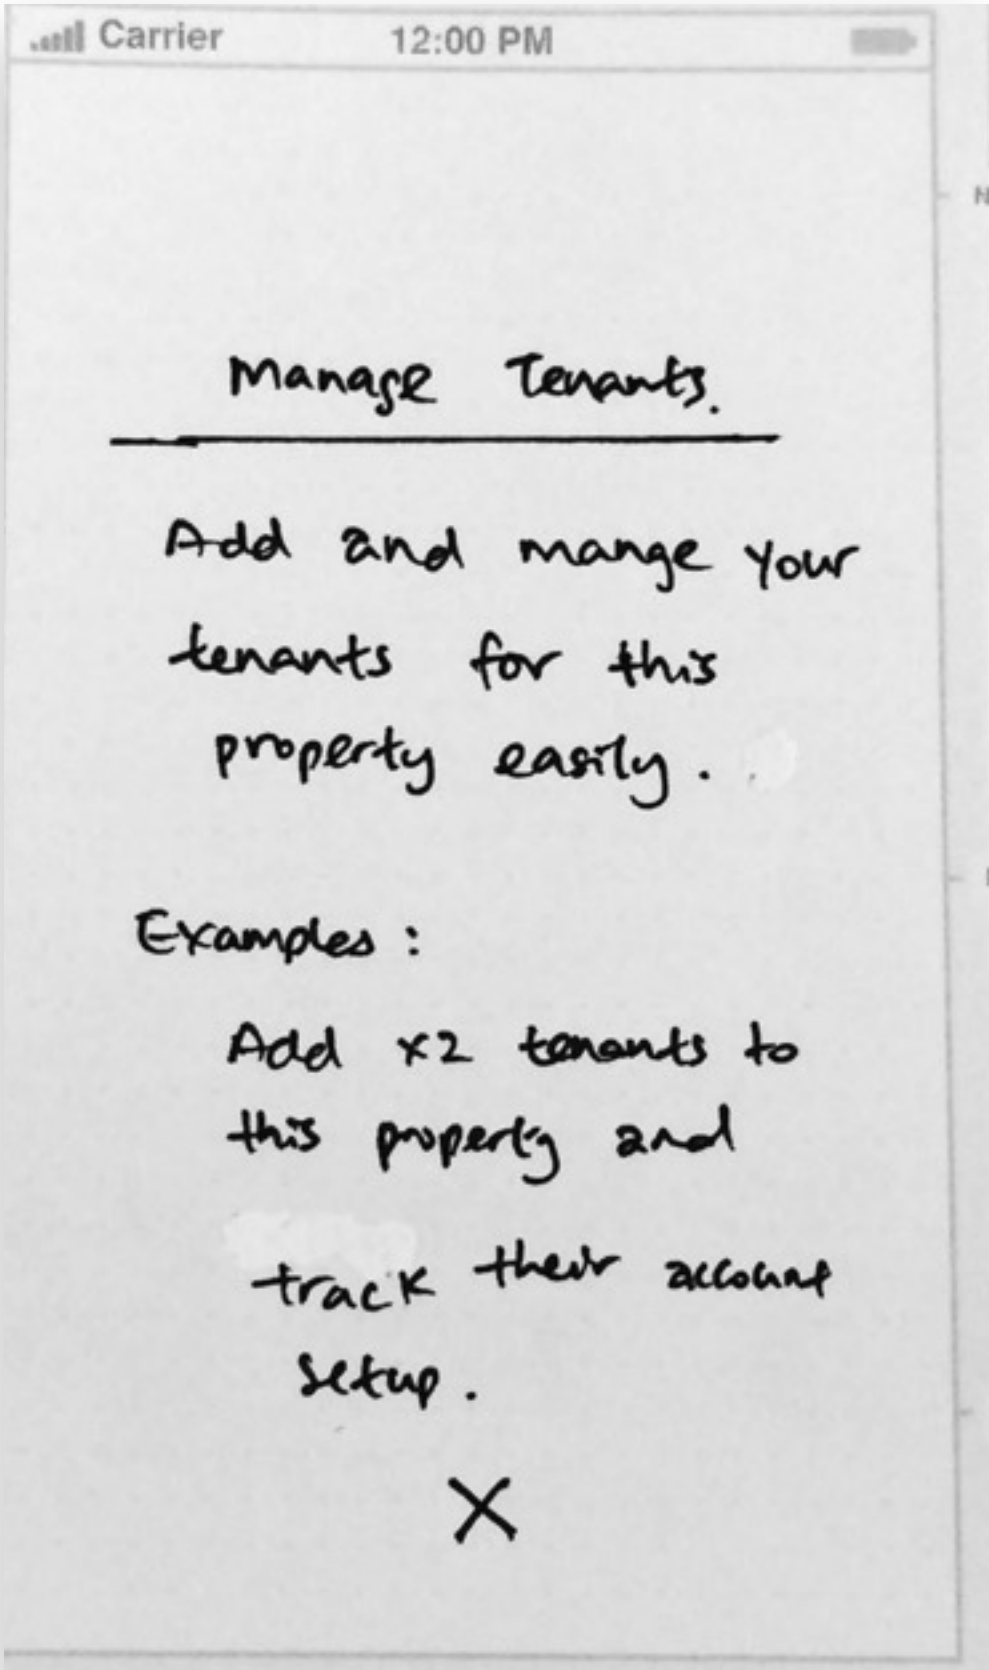 Carrier 12:00 PM
Manage Tenants.
Add and mange your
tenants for this
property easily.
Examples:
Add x2 tenants to
this property and
track their account
setup.
X